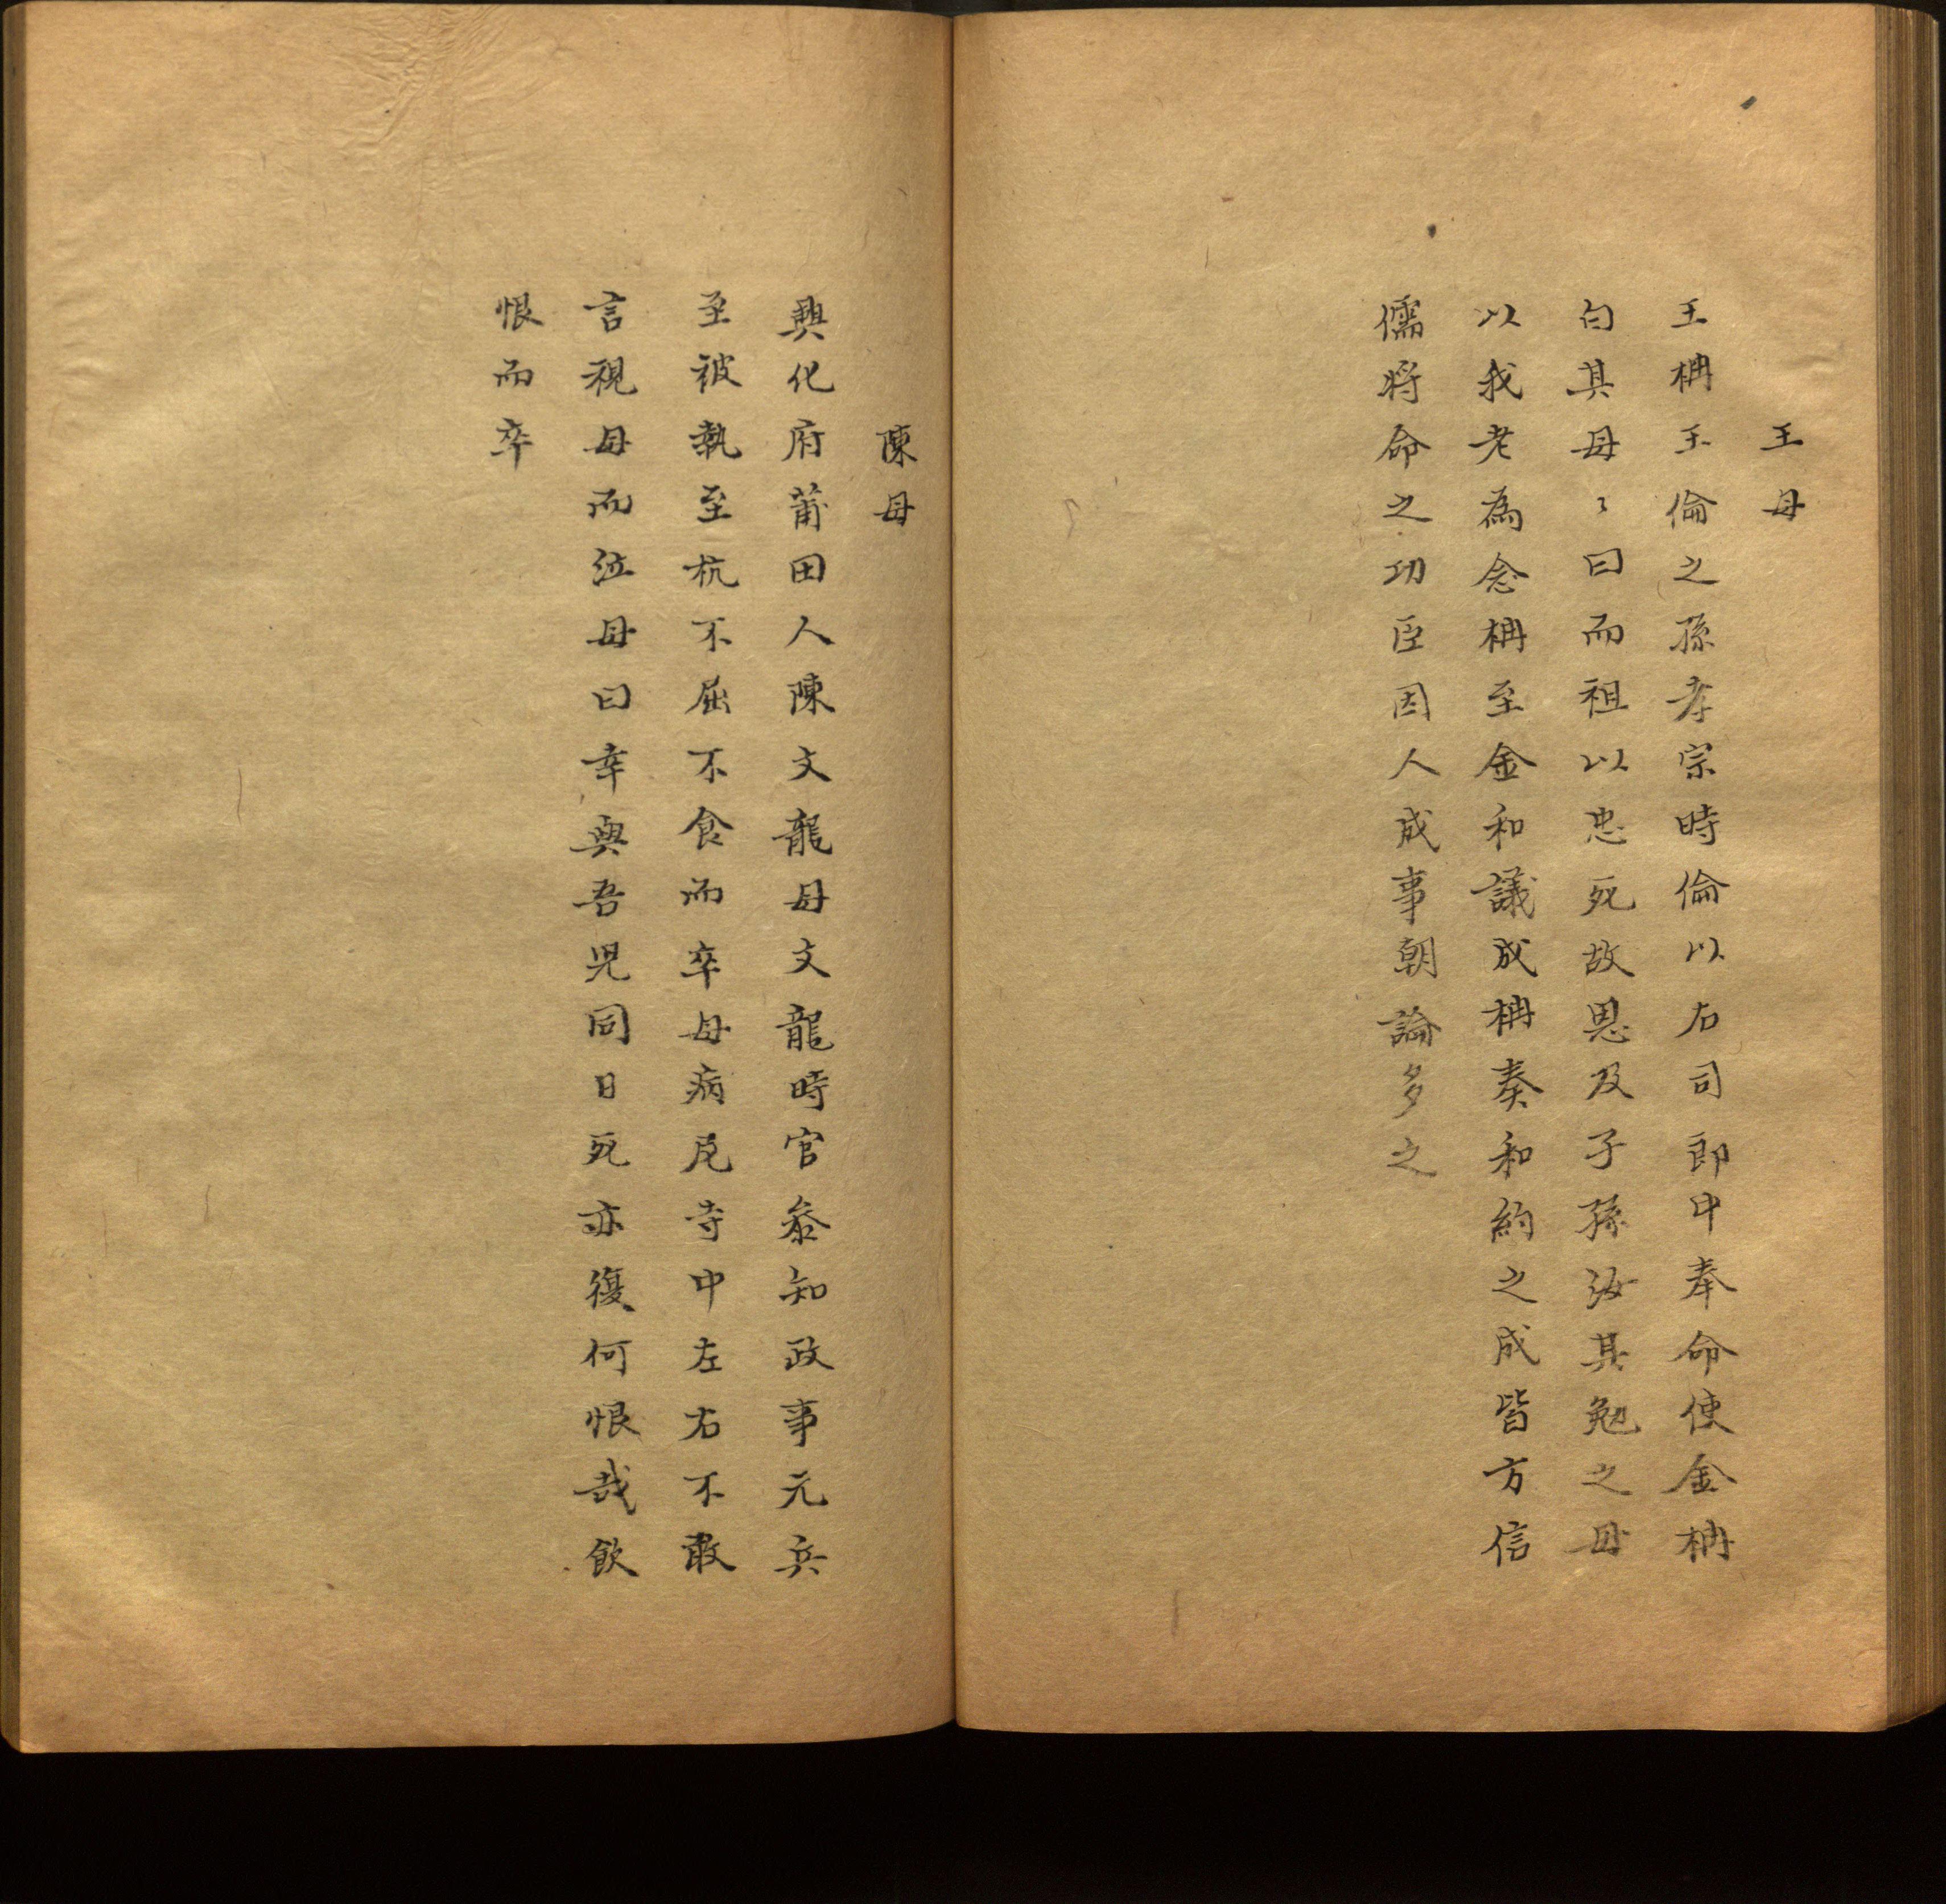 王母
王柟王倫之孫孝宗時倫以右司郎中奉命使金柟
白其母〻曰而祖以忠死故恩及子孫汝其勉之毋
以我老為念柟至金和議成柟奏和約之成皆方信
儒将命之功臣因人成事朝論多之
陳母
興化府莆田人陳文龍母文龍時官叅知政事元兵
至被執至杭不屈不食而卒母病尼寺中左右不敢
言視母而泣母曰幸與吾児同日死亦復何恨哉飲
恨而卒